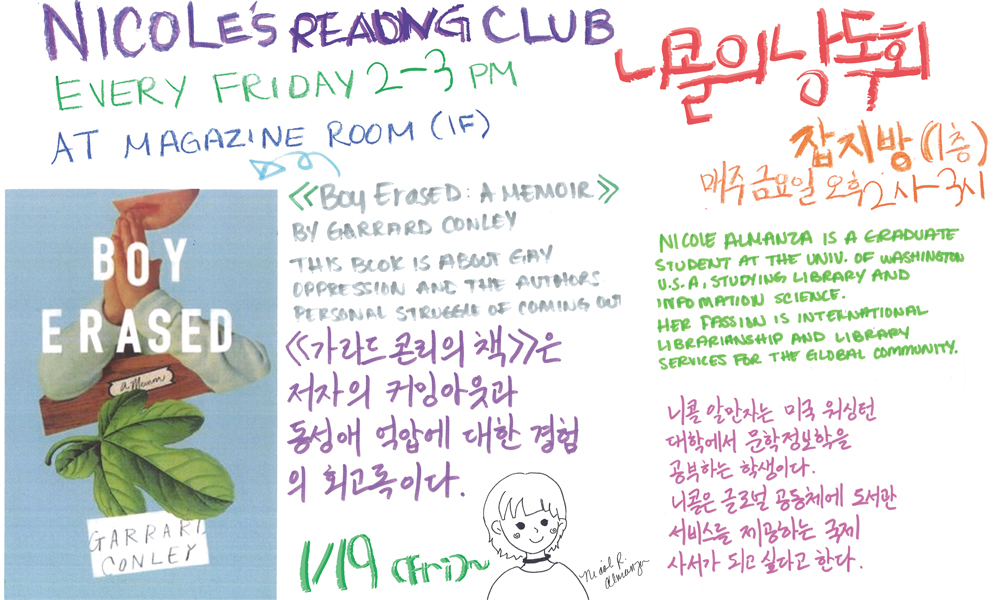 NICOLE'S READING CLUB
EVERY FRIDAY 2-3 PM
AT MAGAZINE ROOM (1F)
니콜의 낭독회
잡지방 (1층)
매주 금요일 오후 2시-3시
BOY
ERASED
a Memoir
GARRARD
CONLEY
《BOY ERASED: A MEMOIR》
BY GARRARD CONLEY
THIS BOOK IS ABOUT GAY
OPPRESSION AND THE AUTHORS
PERSONAL STRUGGLE OF COMING OUT
《가라드 콘리의 책》은
저자의 커밍아웃과
동성애 억압에 대한 경험
의 회고록이다.
1/19 (Fri)~
Nicole R.
Almanza
NICOLE ALMANZA IS A GRADUATE
STUDENT AT THE UNIV. OF WASHINGTON
U.S.A, STUDYING LIBRARY AND
INFOMATION SCIENCE.
HER PASSION IS INTERNATIONAL
LIBRARIANSHIP AND LIBRARY
SERVICES FOR THE GLOBAL COMMUNITY.
니콜 알만자는 미국 워싱턴
대학에서 문학정보학을
공부하는 학생이다.
니콜은 글로벌 공동체에 도서관
서비스를 제공하는 국제
사서가 되고 싶다고 한다.